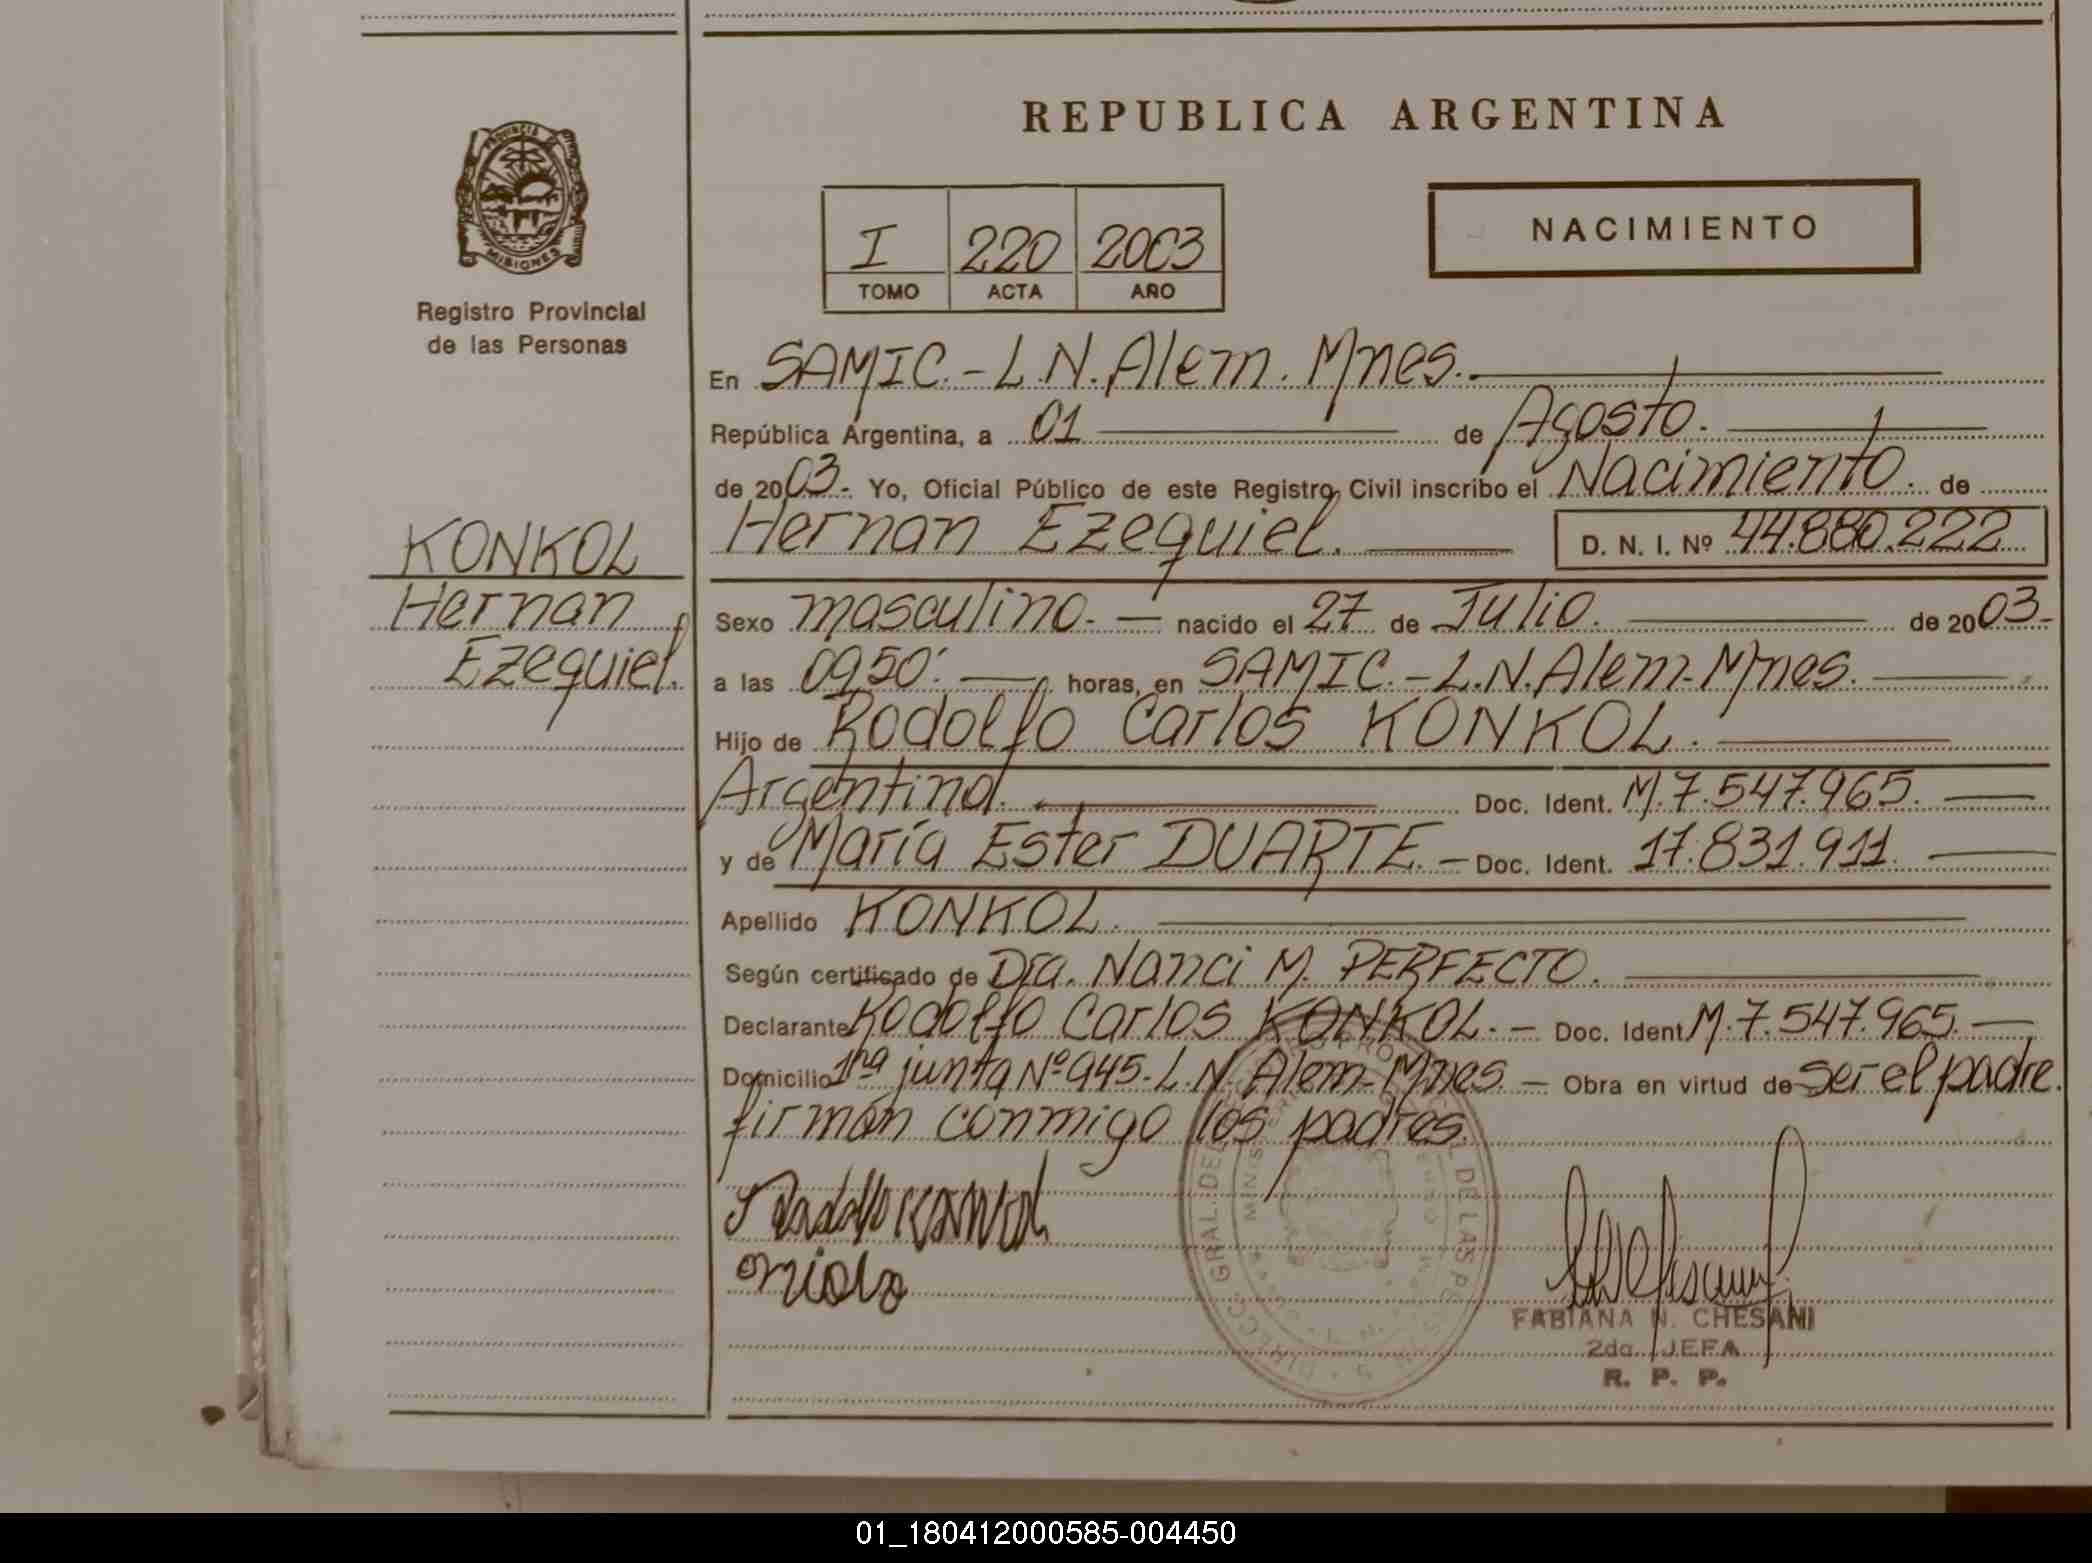 REPUBLICA ARGENTINA
PROVINCIA DE
MISIONES
Registro Provincial
de las Personas
I 220 2003
TOMO ACTA AÑO
NACIMIENTO
En SAMIC.-L.N.Alem. Mnes.
República Argentina, a 01 de Agosto.
de 2003.- Yo, Oficial Público de este Registro Civil inscribo el Nacimiento. de
Hernan Ezequiel. D. N. I. Nº 44.880.222
KONKOL
Hernan
Ezequiel.
Sexo masculino.- nacido el 27 de Julio. de 2003.-
a las 09,50' horas, en SAMIC.-L.N.Alem-Mnes.
Hijo de Rodolfo Carlos KONKOL.
Argentina. Doc. Ident. M.7.547.965.
y de María Ester DUARTE.- Doc. Ident. 17.831.911.
Apellido KONKOL.
Según certificado de Dra. Nanci M. PERFECTO.
Declarante Rodolfo Carlos KONKOL.- Doc. Ident M.7.547.965.
Domicilio 1ra junta Nº945-L.N.Alem-Mnes.- Obra en virtud de ser el padre.
firmán conmigo los padres.
FABIANA N. CHESANI
2da. JEFA
R. P. P.
01_180412000585-004450